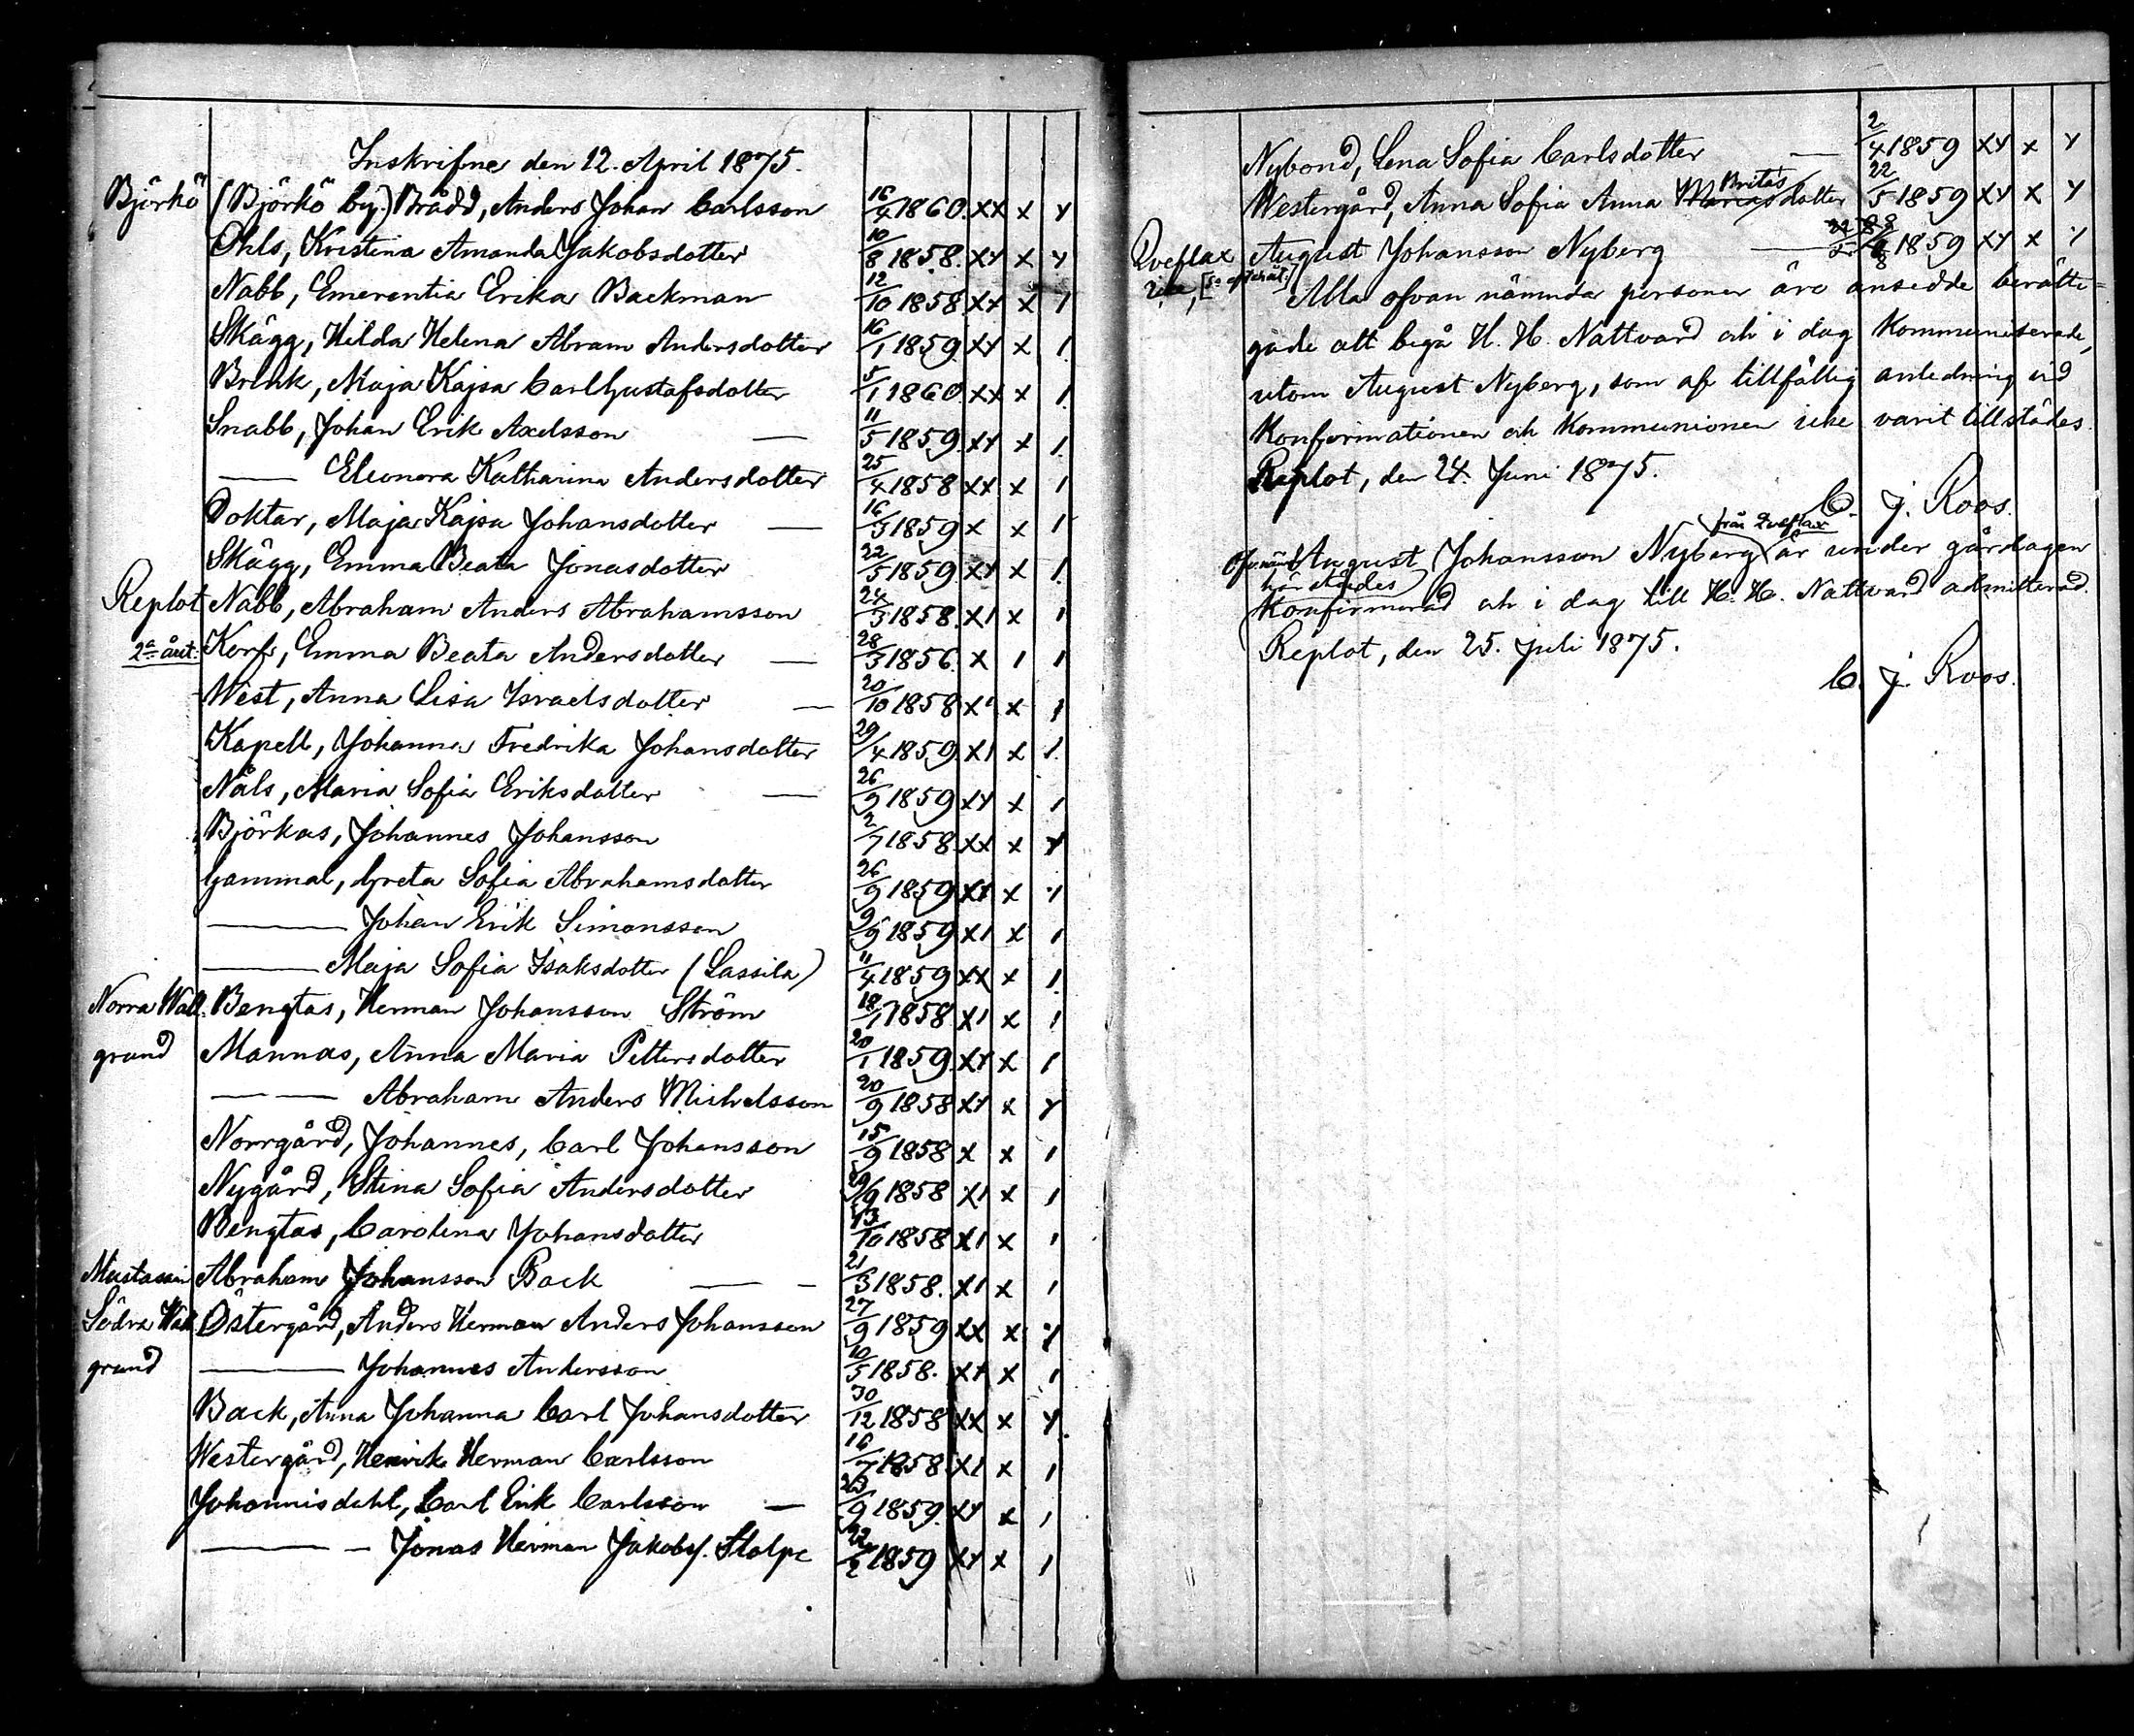 Inskrifne den 12. April 1875.
Björkö (Björkö by.) Brådd, Anders Johan Carlsson 16/4 1860. XX X Y
Ohls, Kristina Amanda Jakobsdotter 10/8 1858. XY X Y
Nabb, Emerentia Erika Backman 12/10 1858 XY X 1
Skägg, Hilda Helena Abram Andersdotter 16/1 1859. XY X 1
Brink, Maja Kajsa Carl Gustafsdotter 5/1 1860 XX X 1
Snabb, Johan Erik Axelsson — 11/5 1859. XY X 1
— Eleonora Katharina Andersdotter 25/4 1858 XX X 1
Doktar, Maja Kajsa Johansdotter — 16/3 1859 X X 1
Skägg, Emma Beata Jonasdotter 22/5 1859 XY X 1
Replot Nabb, Abraham Anders Abrahamsson 24/3 1858. X1 X 1
Korf, Emma Beata Andersdotter — 28/3 1856. X 1 1
West, Anna Lisa Israelsdotter — 20/10 1858 X1 X 1
Kapell, Johanna Fredrika Johansdotter 29/4 1859. X1 X 1
Nåls, Maria Sofia Eriksdotter — 26/9 1859 XY X 1
Björkas, Johannes Johansson 2/7 1858. XX X Y
Gammal, Greta Sofia Abrahamsdotter 26/9 1859 XX X Y
— Johan Erik Simonsson 9/9 1859 X1 X 1
— Maja Sofia Isaksdotter (Lassila) 11/4 1859 XX X 1
Norra Wall. Bengtas, Herman Johansson Ström 18/1 1858 X1 X 1
grund Mannas, Anna Maria Pettersdotter 20/1 1859. XY X 1
— — Abraham Anders Michelsson 20/9 1858 XY X Y
Norrgård, Johannes, Carl Johansson 15/9 1858 X X 1
Nygård, Stina Sofia Andersdotter 29/9 1858 X1 X 1
Bengtas, Carolina Johansdotter 13/10 1858 X1 X 1
Abraham Johansson Back — — 21/3 1858. X1 X 1
Södra Wall Östergård, Anders Herman Anders Johansson 27/9 1859 XX X Y
grund — Johannes Andersson 10/5 1858. XX X 1
Back, Anna Johanna Carl Johansdotter 30/12 1858 XX X Y
Westergård, Henrik Herman Carlsson 16/7 1858. X1 X 1
Johannisdahl, Carl Erik Carlsson — 23/9 1859. XY X 1
— — Jonas Herman Jakobss. Stolpe 22/2 1859 XY X 1
Nybond, Lena Sofia Carlsdotter — 2/4 1859 XY X Y
Westergård, Anna Sofia Anna Britas dotter 22/5 1859 XY X Y
Qveflax August Johansson Nyberg — 1859 XY X Y
Alla ofvan nämnda personer äro ansedde berätti=
gade att begå H. H. Nattvard och i dag kommunicerade,
utom August Nyberg, som af tillfällig anledning vid
Konfirmationen och Kommunionen icke varit tillstädes.
Replot, den 24. Juni 1875.
C. J. Roos.
från Qveflax
Ofvannämnd August Johansson Nyberg är under gårdagen
härstädes
Konfirmerad och i dag till H. H. Nattvard admitterad.
Replot, den 25. Juli 1875.
C. J. Roos.